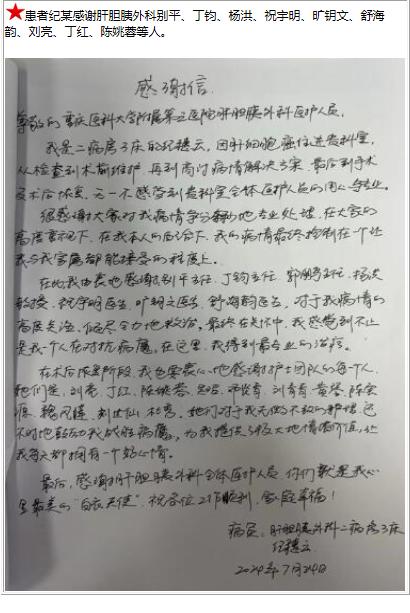 ★患者纪某感谢肝胆胰外科别平、丁钧、杨洪、祝宇明、旷钥文、舒海
韵、刘亮、丁红、陈姚蓉等人。
感谢信
尊敬的重庆医科大学附属第三医院肝胆胰外科医护人员,
我是二病房3床的纪穗云,因肝细胞癌住进贵科室,
从检查到术前维护,再到商讨病情解决方案,最后到手术
及术后恢复,无一不感受到贵科室全体医护人员的用心与专业。
很感谢大家对我病情争分夺秒地专业处理,在大家的
高度重视下,在我本人的配合下,我的病情最终控制在一个让
我与我家属都能接受的程度上。
在此我由衷地感谢别平主任、丁钧主任、郭鹏主任、杨洪
教授、祝宇明医生、旷钥文医生、舒海韵医生,对于我病情的
高度关注,倾尽全力地救治。最终在关怀中,我感觉到不止
是我一个人在对抗病魔,在这里,我得到最专业的治疗。
在术后恢复阶段,我也要衷心地感谢护士团队的每一个人,
她们是,刘亮、丁红、陈姚蓉、
她们对于我无微不至的护理,
不时地鼓励我战胜病魔,为我提供了极大地情绪价值,让
我每天都拥有一个好心情。
最后,感谢肝胆胰外科全体医护人员,你们就是我心
里最美的“白衣天使”,祝各位工作顺利,家庭幸福!
病员:肝胆胰外科二病房3床
纪穗云
2024年7月24日